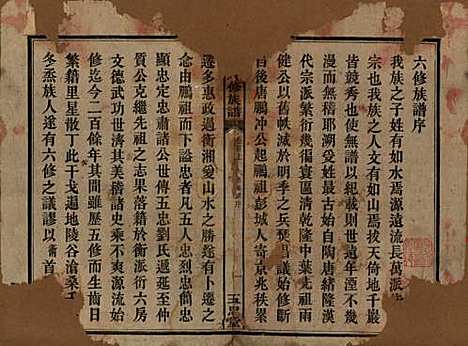 六修族譜序
我族之子姓有如水焉源遠流長萬派
宗也我族之人文有如山焉拔天倚地千
皆競秀也使無譜以紀載則世遠年湮不
與劉氏之得姓最古始自陶唐繕洙漢
代宗派繁衍幾徧寰區清乾隆中葉先祖雨
健公以舊帙滅於明季之兵燹昌議始修
百後唐鵬冲公起鵬祖彭城人寄京兆秩累
遷多惠政過衡湘愛山水之勝遂有卜遷之
念由鵬祖而下謚忠者凡五人忠烈忠簡忠
顯忠定忠肅諸公世傳五忠劉氏遞延至仲
質公克繼先祖之志果落籍於衡派衍六房
文德武功世濟其美稽諸史乘不爽源流始
修迄今二百餘年其間雖歷五修而生齒日
繁籍里星散丁此干戈遍地陵谷滄桑
冬烝族人遂有六修之議謬以首
六修族譜
五忠堂